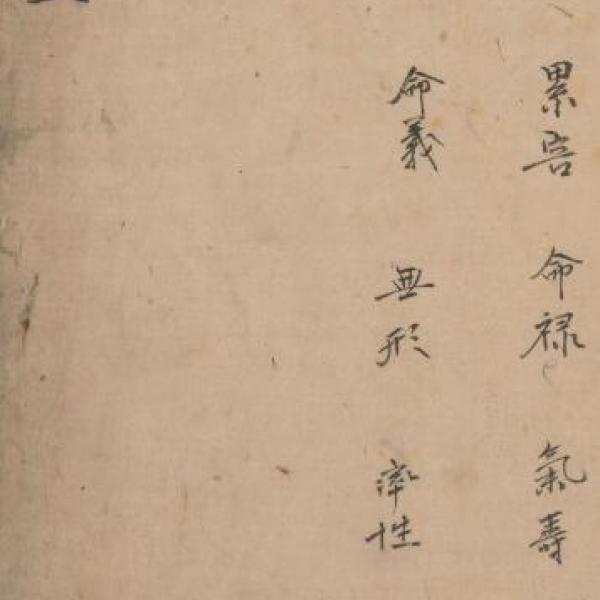 累害　命禄　氣壽
命義　無形　率性